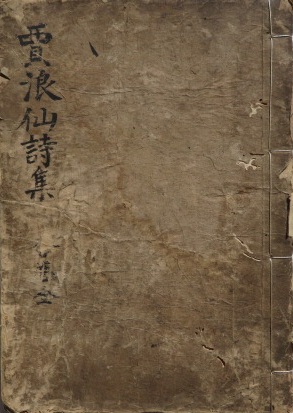 賈浪仙詩集
全